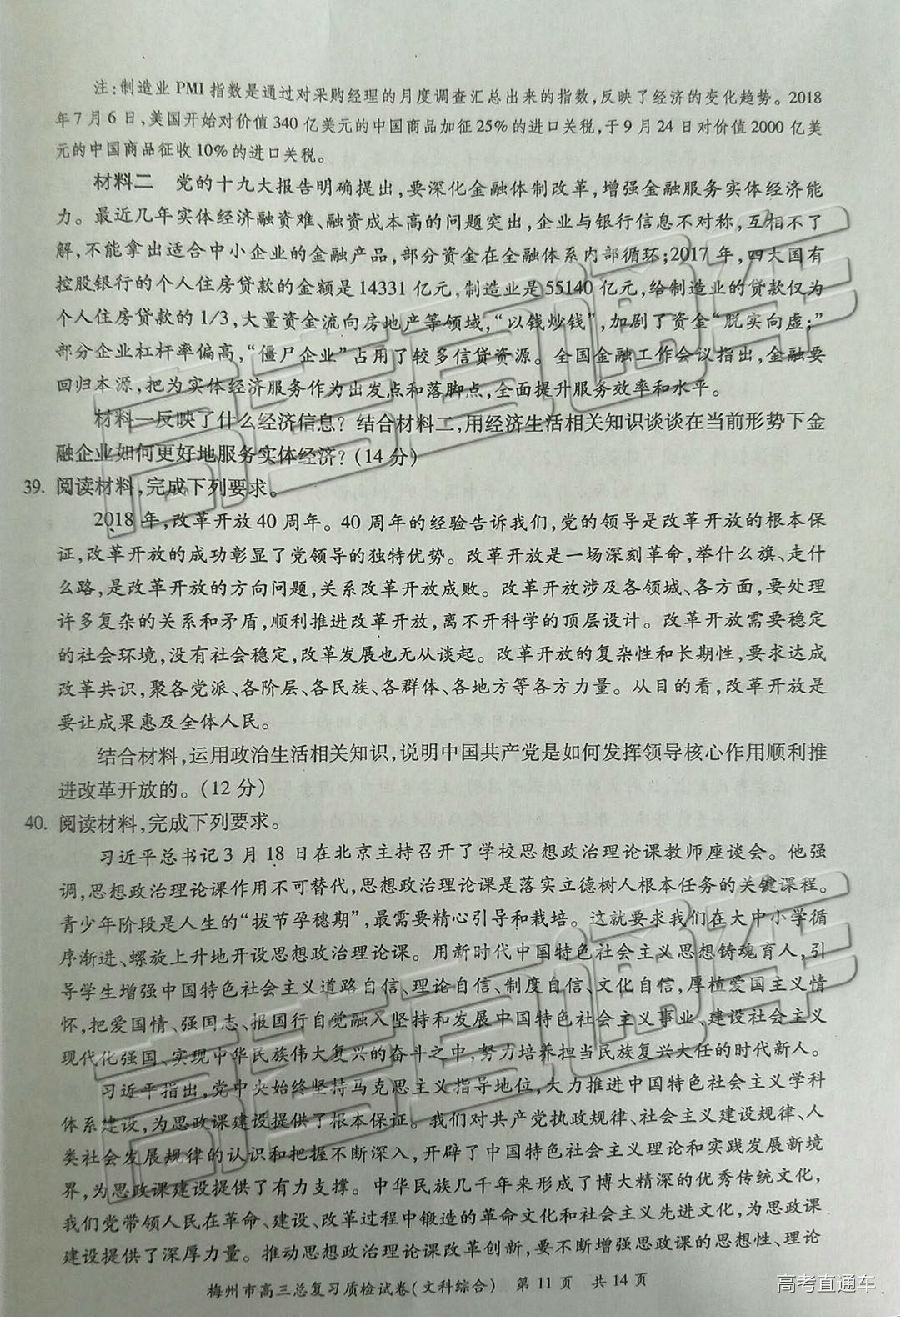 注:制造业 PMI 指数是通过对采购经理的月度调查汇总出来的指数,反映了经济的变化趋势。2018
年7月6日,美国开始对价值340亿美元的中国商品加征25%的进口关税,于9月24日对价值2000亿美
元的中国商品征收10%的进口关税。
材料二 党的十九大报告明确提出,要深化金融体制改革,增强金融服务实体经济能
力。最近几年实体经济融资难、融资成本高的问题突出,企业与银行信息不对称,互相不了
解,不能拿出适合中小企业的金融产品,部分资金在金融体系内部循环;2017年,四大国有
控股银行的个人住房贷款的金额是14331亿元,制造业是55140亿元,给制造业的贷款仅为
个人住房贷款的1/3,大量资金流向房地产等领域,“以钱炒钱”,加剧了资金“脱实向虚;”
部分企业杠杆率偏高,“僵尸企业”占用了较多信贷资源。全国金融工作会议指出,金融要
回归本源,把为实体经济服务作为出发点和落脚点,全面提升服务效率和水平。
材料一反映了什么经济信息?结合材料二,用经济生活相关知识谈谈在当前形势下金
融企业如何更好地服务实体经济?(14分)
39. 阅读材料,完成下列要求。
2018年,改革开放40周年。40周年的经验告诉我们,党的领导是改革开放的根本保
证,改革开放的成功彰显了党领导的独特优势。改革开放是一场深刻革命,举什么旗、走什
么路,是改革开放的方向问题,关系改革开放成败。改革开放涉及各领域、各方面,要处理
许多复杂的关系和矛盾,顺利推进改革开放,离不开科学的顶层设计。改革开放需要稳定
的社会环境,没有社会稳定,改革发展也无从谈起。改革开放的复杂性和长期性,要求达成
改革共识,聚各党派、各阶层、各民族、各群体、各地方等各方力量。从目的看,改革开放是
要让成果惠及全体人民。
结合材料,运用政治生活相关知识,说明中国共产党是如何发挥领导核心作用顺利推
进改革开放的。(12分)
40. 阅读材料,完成下列要求。
习近平总书记3月18日在北京主持召开了学校思想政治理论课教师座谈会。他强
调,思想政治理论课作用不可替代,思想政治理论课是落实立德树人根本任务的关键课程。
青少年阶段是人生的“拔节孕穗期”,最需要精心引导和栽培。这就要求我们在大中小学循
序渐进、螺旋上升地开设思想政治理论课。用新时代中国特色社会主义思想铸魂育人,引
导学生增强中国特色社会主义道路自信、理论自信、制度自信、文化自信,厚植爱国主义情
怀,把爱国情、强国志、报国行自觉融入坚持和发展中国特色社会主义事业、建设社会主义
现代化强国、实现中华民族伟大复兴的奋斗之中,努力培养担当民族复兴大任的时代新人。
习近平指出,党中央始终坚持马克思主义指导地位,大力推进中国特色社会主义学科
体系建设,为思政课建设提供了根本保证。我们对共产党执政规律、社会主义建设规律、人
类社会发展规律的认识和把握不断深入,开辟了中国特色社会主义理论和实践发展新境
界,为思政课建设提供了有力支撑。中华民族几千年来形成了博大精深的优秀传统文化,
我们党带领人民在革命、建设、改革过程中锻造的革命文化和社会主义先进文化,为思政课
建设提供了深厚力量。推动思想政治理论课改革创新,要不断增强思政课的思想性、理论
梅州市高三总复习质检试卷(文科综合) 第11页 共14页
高考直通车